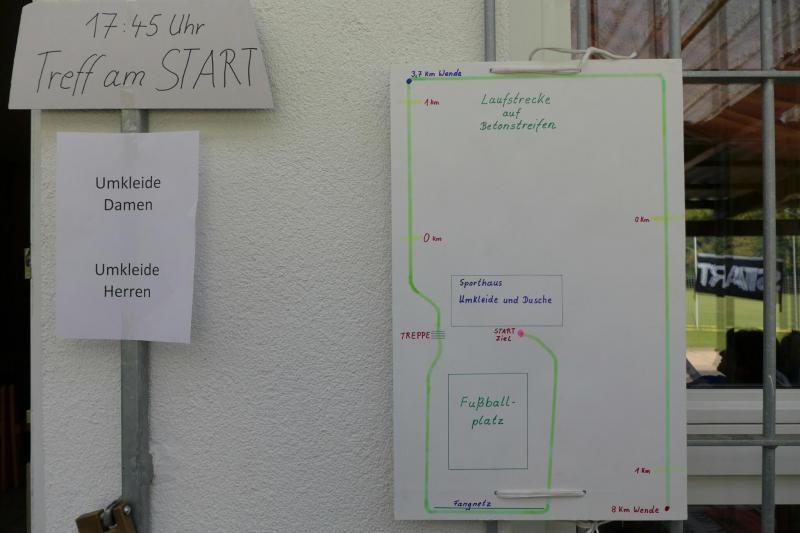 17:45 Uhr
Treff am START
Umkleide
Damen
Umkleide
Herren
3,7 Km Wende
1 Km
Laufstrecke
auf
Betonstreifen
0 Km
0 Km
Sporthaus
Umkleide und Dusche
TREPPE
START
Ziel
Fußball-
platz
1 Km
Fangnetz
8 Km Wende
START